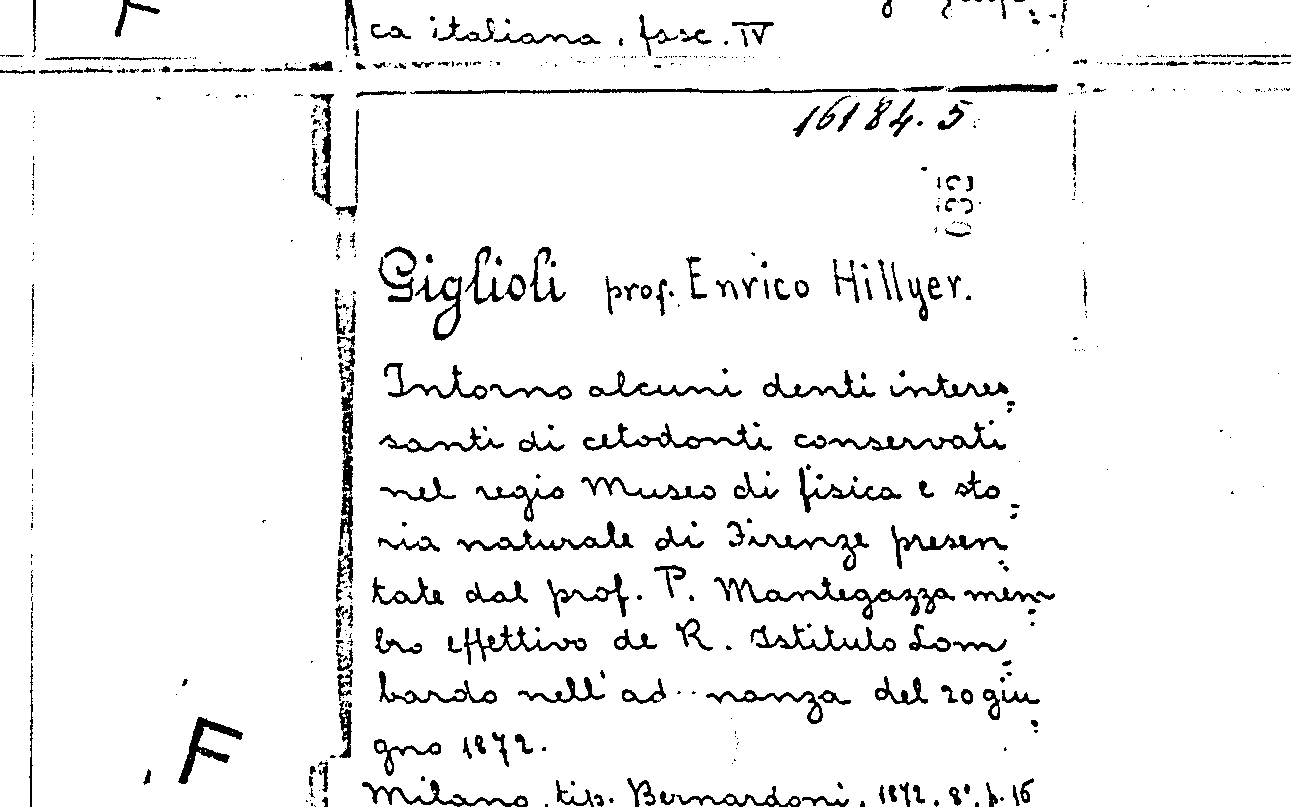 F
ca italiana, fasc. IV
16184.5
032
Giglioli prof. Enrico Hillyer.
Intorno alcuni denti interes
santi di cetodonti conservati
nel regio Museo di fisica e sto
ria naturale di Firenze presen
tate dal prof. P. Mantegazza mem
bro effettivo de R. Istituto Lom
bardo nell'ad nanza del 20 giu
gno 1872.
F
Milano, tip. Bernardoni, 1872, 8°, p. 16